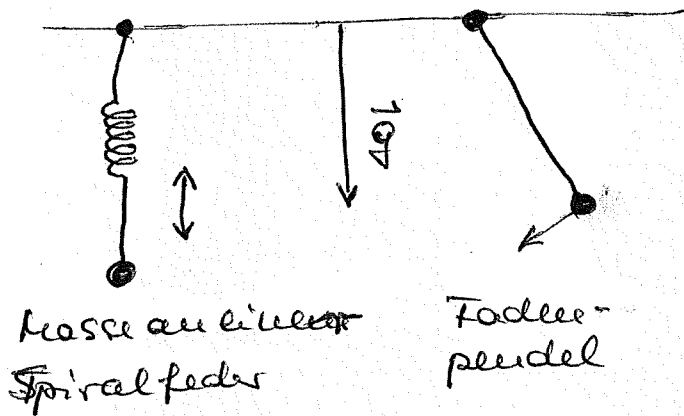 g
Masse an linear
Spiralfeder
Faden-
pendel